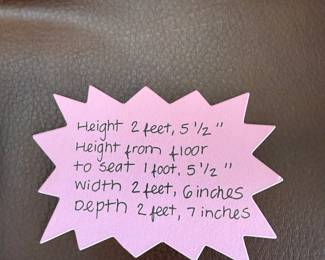 Height 2 feet, 5 1/2"
Height from floor
to seat 1 foot, 5 1/2"
Width 2 feet, 6 inches
Depth 2 feet, 7 inches